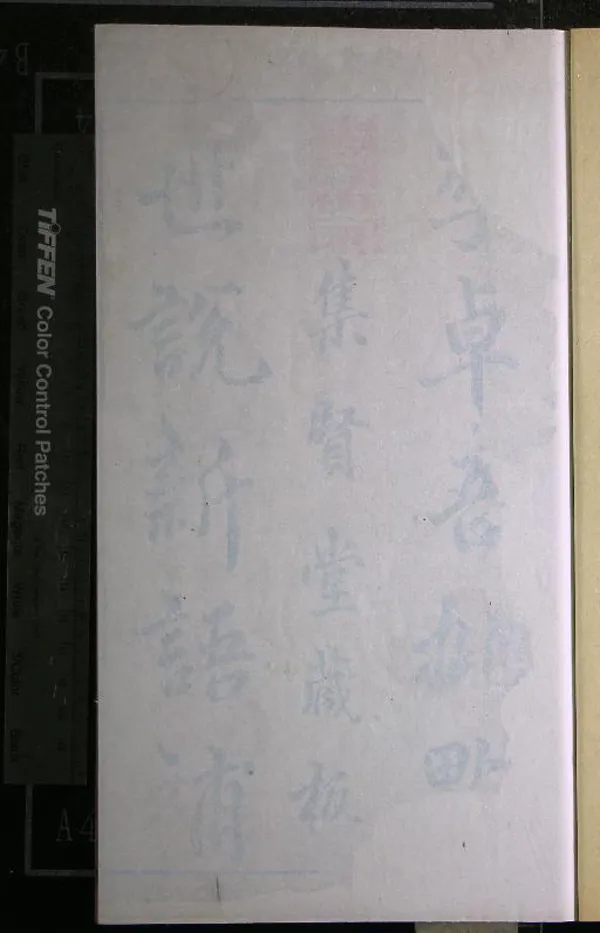 李卓吾批點
集賢堂藏板
世說新語補
TIFFEN Color Control Patches
A4